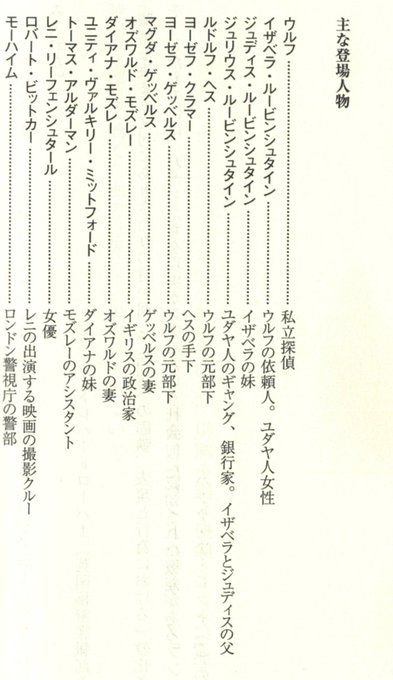 主な登場人物
ウルフ……………………私立探偵
イザベラ・ルービンシュタイン……………………ウルフの依頼人。ユダヤ人女性
ジュディス・ルービンシュタイン……………………イザベラの妹
ジュリウス・ルービンシュタイン……………………ユダヤ人のギャング、銀行家。イザベラとジュディスの父
ルドルフ・ヘス……………………ウルフの元部下
ヨーゼフ・クラマー……………………ヘスの手下
ヨーゼフ・ゲッベルス……………………ウルフの元部下
マグダ・ゲッベルス……………………ゲッベルスの妻
オズワルド・モズレー……………………イギリスの政治家
ダイアナ・モズレー……………………オズワルドの妻
ユニティ・ヴァルキリー・ミットフォード……………………ダイアナの妹
トーマス・アルダーマン……………………モズレーのアシスタント
レニ・リーフェンシュタール……………………女優
ロバート・ビットカー……………………レニの出演する映画の撮影クルー
モーハイム……………………ロンドン警視庁の警部